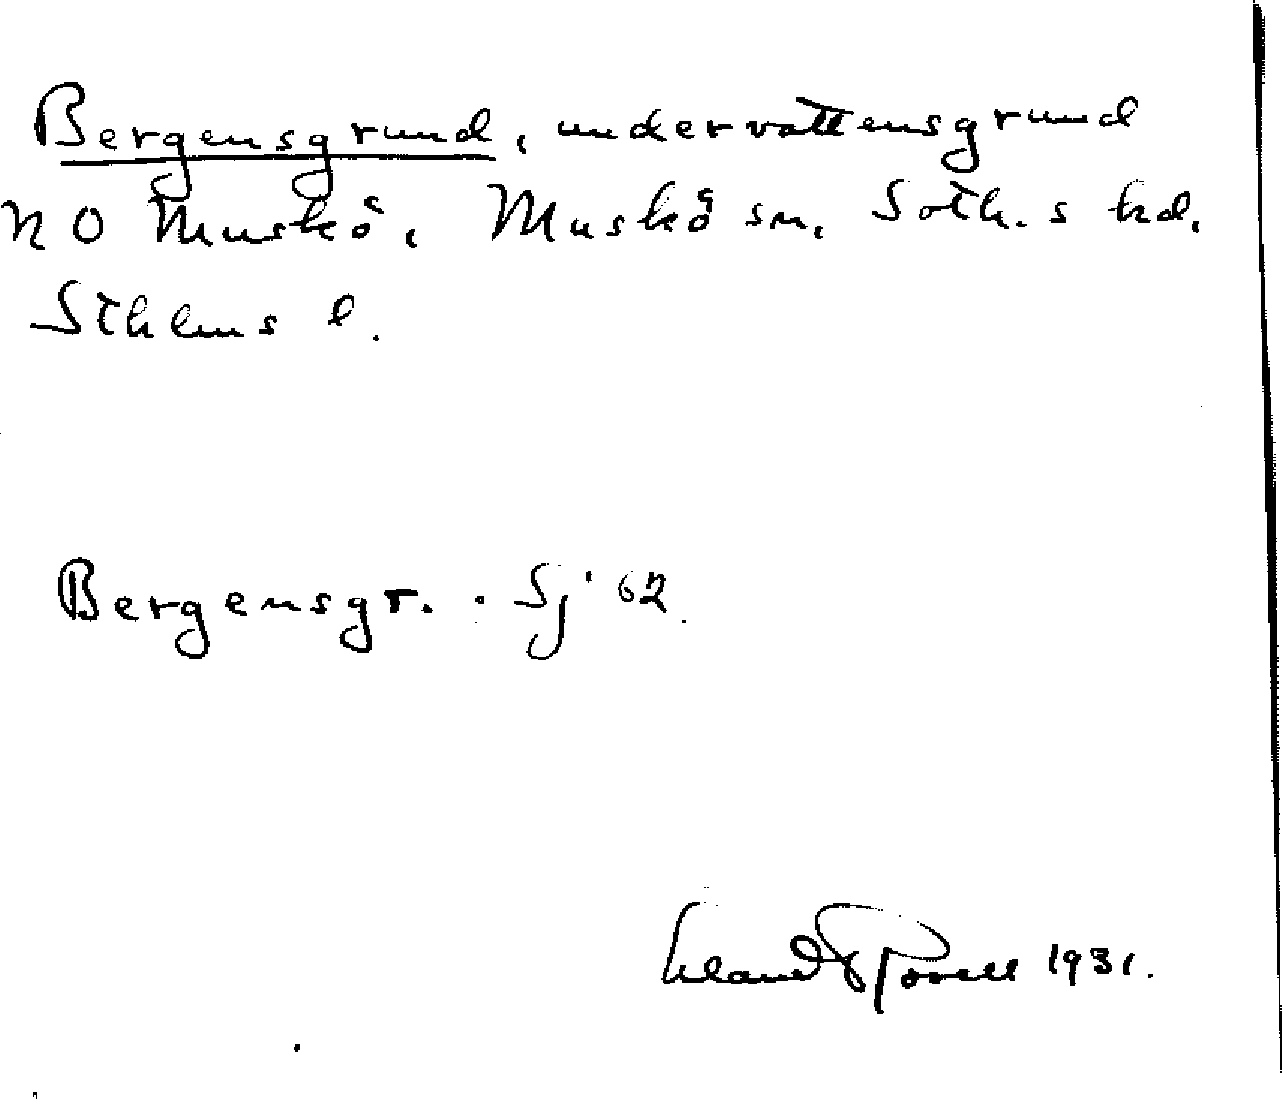 Bergensgrund, undervattensgrund
NO Muskö, Muskö sn, Soth.s hd,
Sthlms l.
Bergensgr. . Sj 62
1931.